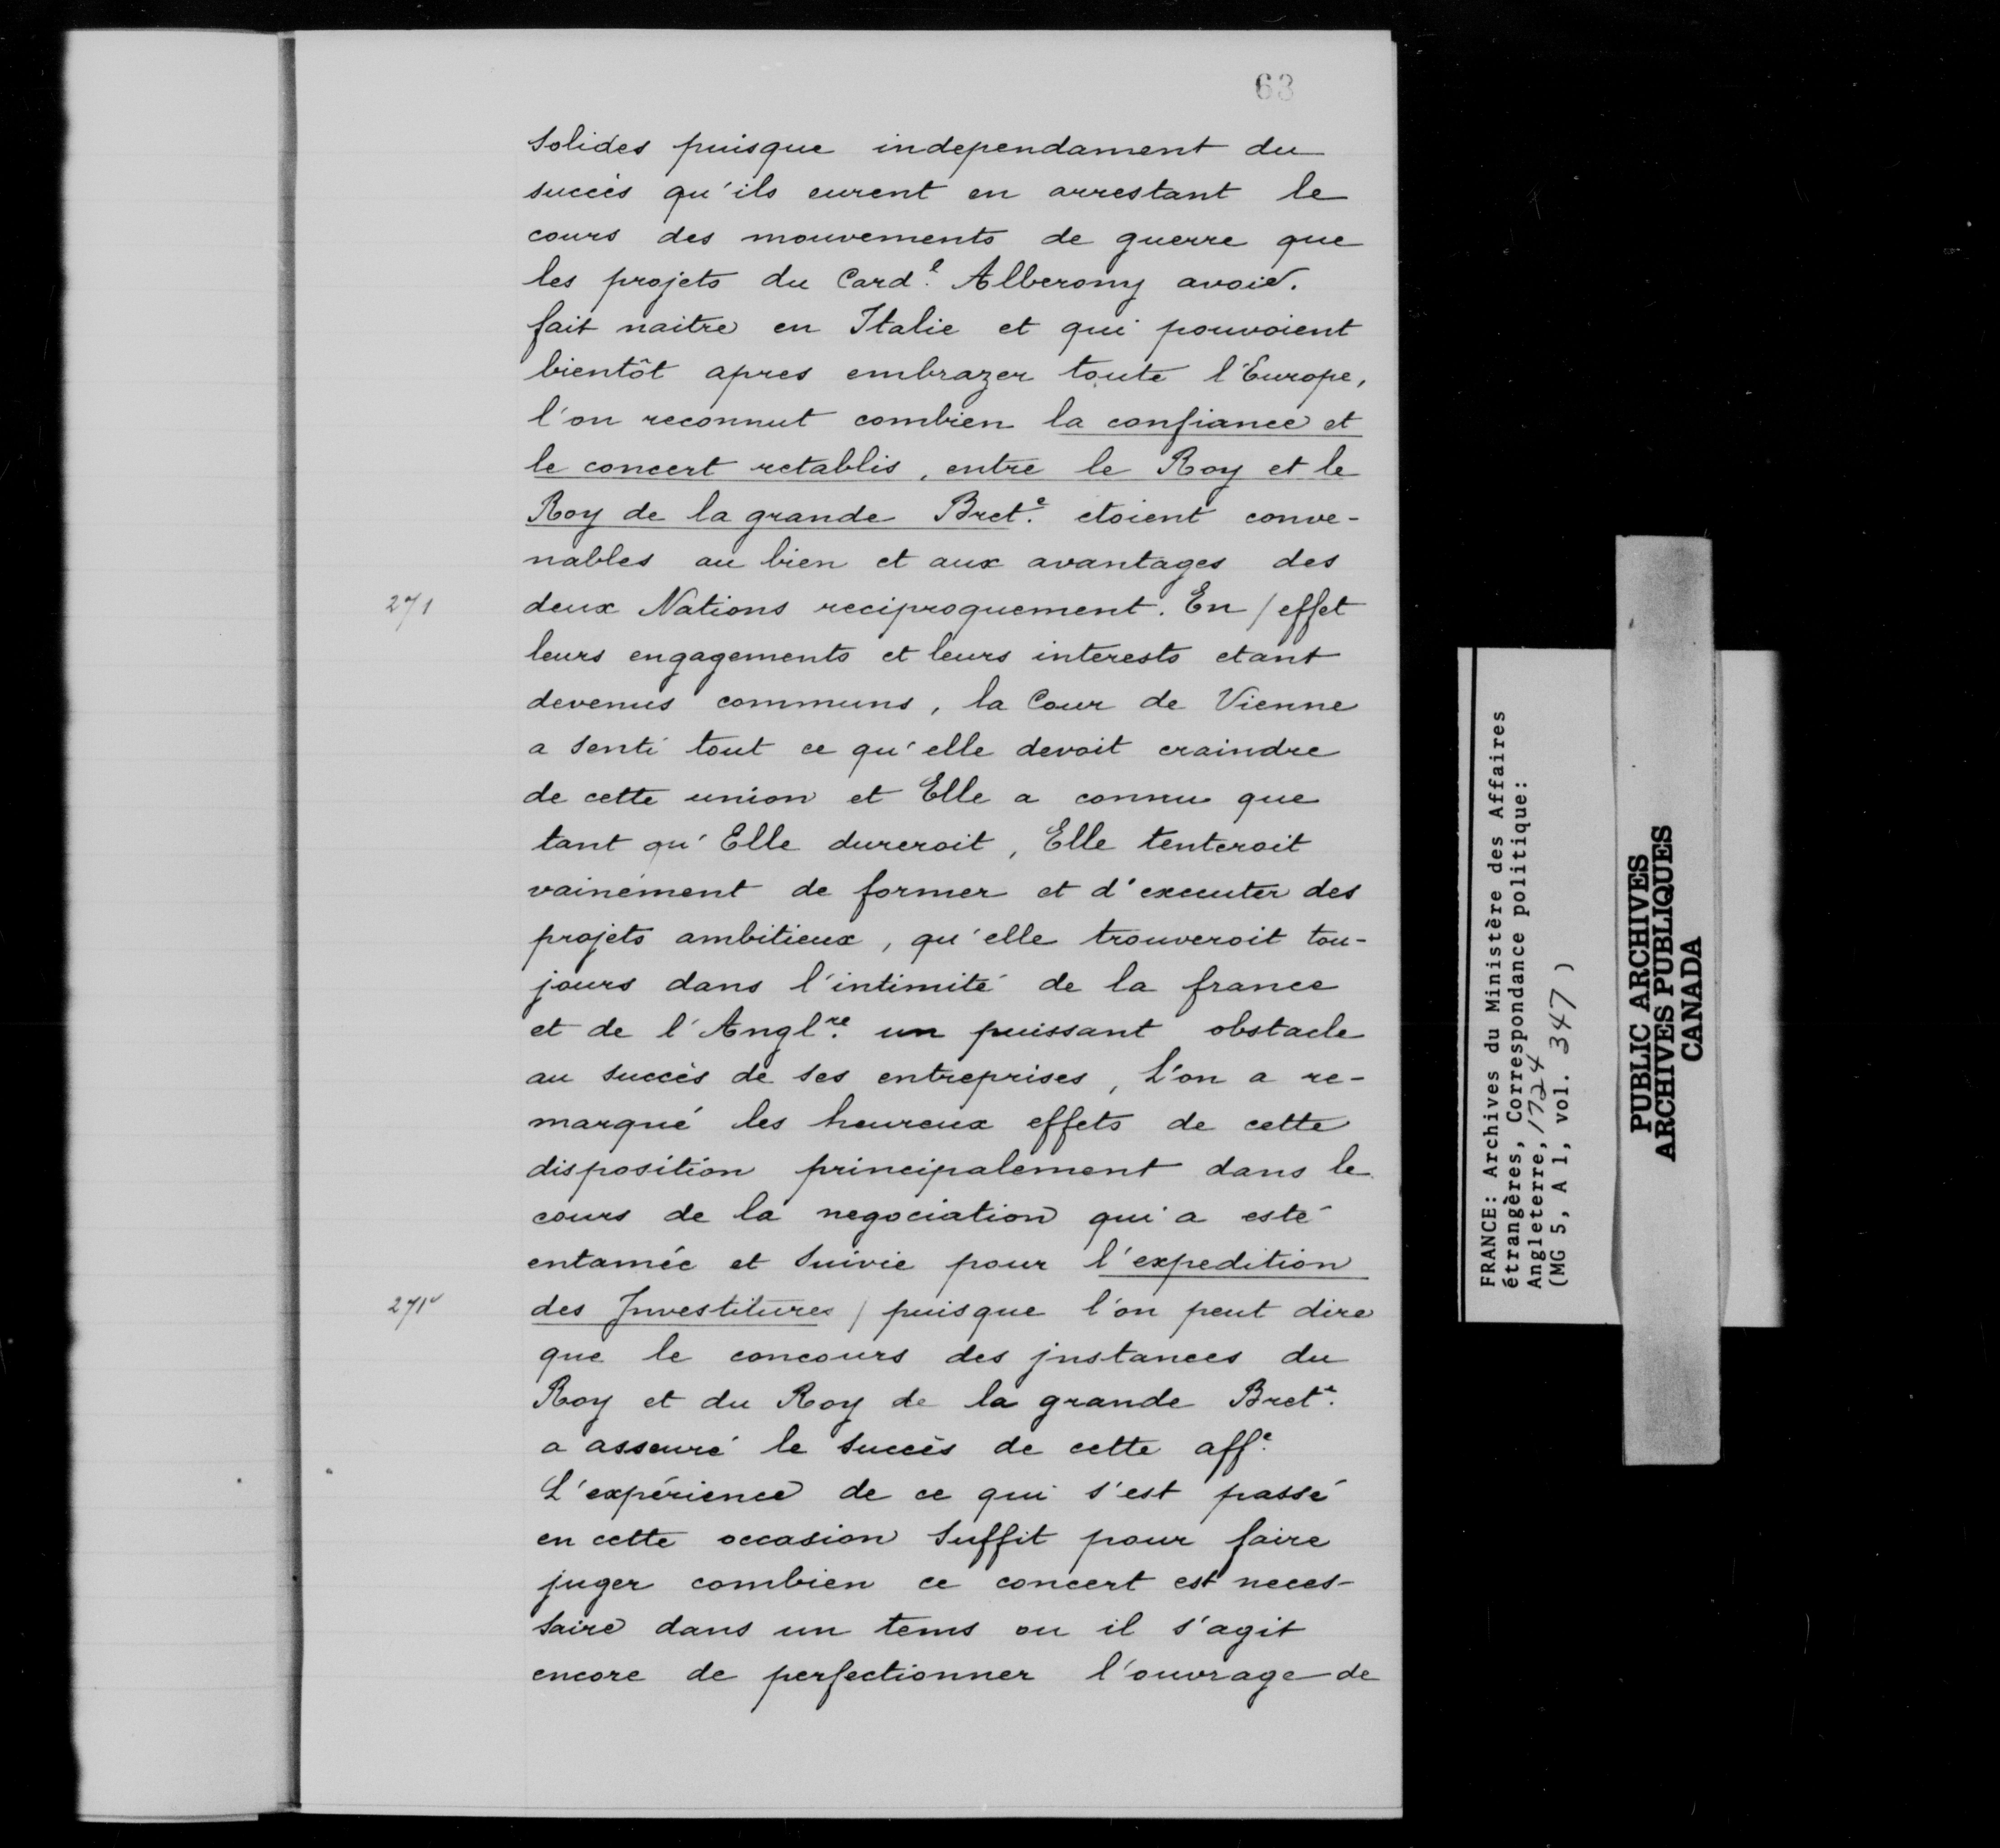 63
solides puisque independament du
succès qu'ils eurent en arrestant le
cours des mouvements de guerre que
les projets du Card.l Alberony avoie.
fait naitre en Italie et qui pouvoient
bientôt apres embrazer toute l'Europe,
l'on reconnut combien la confiance et
le concert retablis, entre le Roy et le
Roy de la grande Bret.e etoient conve-
nables au bien et aux avantages des
271
deux Nations reciproquement. En / effet
leurs engagements et leurs interests etant
devenus communs, la Cour de Vienne
a senti tout ce qu'elle devoit craindre
de cette union et Elle a connu que
tant qu'Elle dureroit, Elle tenteroit
vainement de former et d'executer des
projets ambitieux, qu'elle trouveroit tou-
jours dans l'intimité de la france
et de l'Angl.re un puissant obstacle
au succès de ses entreprises, L'on a re-
marqué les heureux effets de cette
disposition principalement dans le
cours de la negociation qui a esté
entamée et suivie pour l'expedition
271v
des Investitures / puisque l'on peut dire
que le concours des jnstances du
Roy et du Roy de la grande Bret.e
a asseuré le succès de cette aff.e
L'expérience de ce qui s'est passé
en cette occasion suffit pour faire
juger combien ce concert est neces-
saire dans un tems ou il s'agit
encore de perfectionner l'ouvrage de
FRANCE: Archives du Ministère des Affaires
étrangères, Correspondance politique:
Angleterre, 1724
(MG 5, A 1, vol. 347 )
PUBLIC ARCHIVES
ARCHIVES PUBLIQUES
CANADA